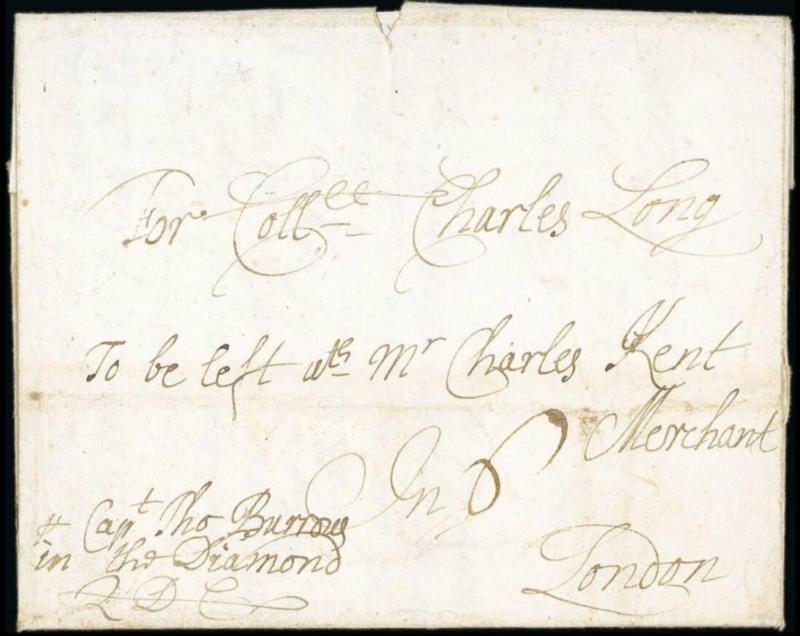 For Coll.ee Charles Long
To be left wth Mr Charles Kent
Merchant
In 6
London
Capt Tho Burrows
in the Diamond
Q D C